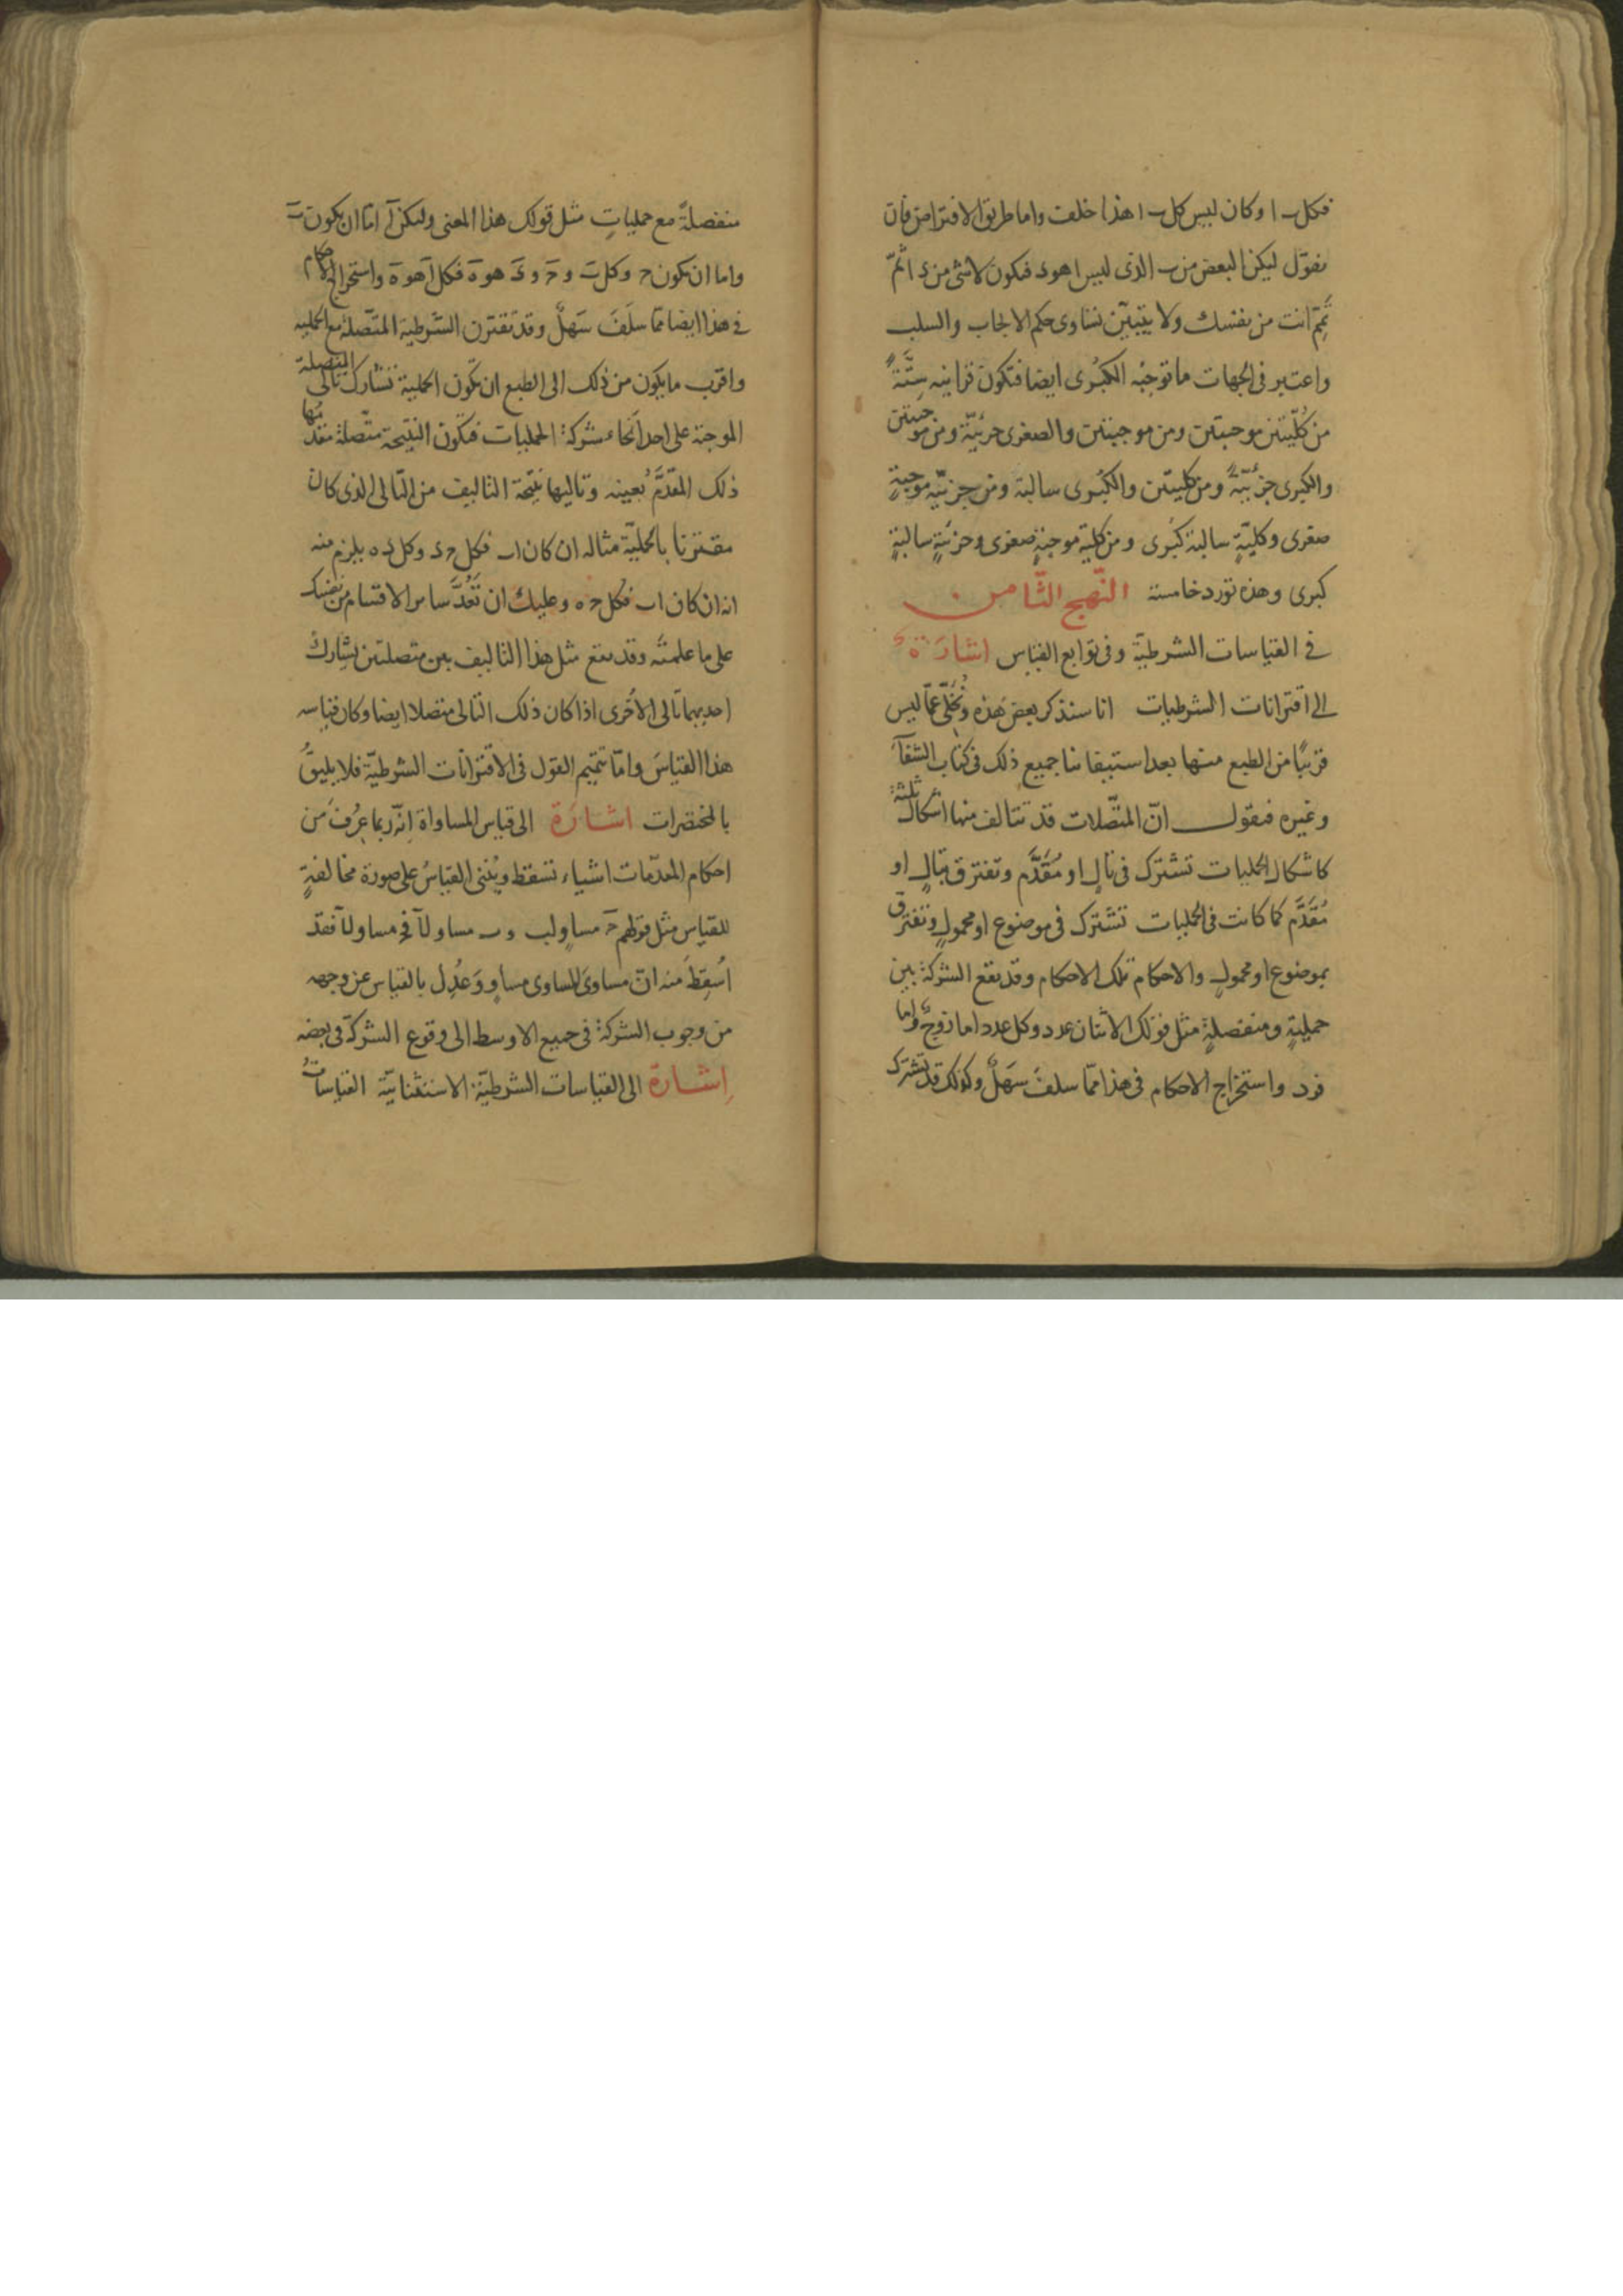 فكل ب ا وكان ليس كل ب ا هذا خلف واما طريق الافتراض فان
نقول ليكن البعض من ب الذى ليس ا هو د فيكون لا شئ من د ا ثم
تمم انت من نفسك ولا يتبين تساوى حكم الايجاب والسلب
واعتبر فى الجهات ما توجبه الكبرى ايضا فتكون قراينه ستة
من كليتين موجبتين ومن موجبتين والصغرى جزئية ومن موجبتين
والكبرى جزئيّة ومن كليتين والكبرى سالبة ومن جزئيّة موجبةٍ
صغرى وكليّةٍ سالبة كبرى ومن كليّة موجبةٍ صغرى وجزئيةٍ سالبةٍ
كبرى وهذه تورد خامسة النّهج الثّامن
فى القياسات الشرطيّة وفى توابع القياس اشارة
الى اقترانات الشرطيات انا سنذكر بعض هذه ونخلّى عمّا ليس
قريبًا من الطبع منها بعد استيفائنا جميع ذلك فى كتاب الشفآء
وغيره فنقول انّ المتّصلات قد تتالف منها اشكال ثلثة
كاشكال الحمليات تشترك فى تالٍ او مُقَدَّم وتفترق بتالٍ او
مُقَدَّم كما كانت فى الحمليات تشترك فى موضوع او محمولٍ وتفترق
بموضوع او محمولٍ والاحكام تلك الاحكام وقد تقع الشركة بين
حمليةٍ ومنفصلةٍ مثل قولك الاثنان عدد وكل عدد اما زوجٌ واما
فرد واستخراج الاحكام فى هذا ممّا سلف سَهلٌ وكذلك قد تشترك
منفصلةً مع حملياتٍ مثل قولك هذا المعنى وليكن آ امّا ان يكون بَ
واما ان يكون حَ وكل بَ و حَ و دَ هو هَ فكل آ هو هَ واستخراج الاحكام
فى هذا ايضا ممّا سلَفَ سَهلٌ وقد تقترن الشرطية المتّصلة مع الحملية
واقرب ما يكون من ذلك الى الطبع ان تكون الحملية تشارك تالى المتصلة
الموجبة على احد اَنحاء شركة الحمليات فتكون النتيجة متّصلة مقدّمها
ذلك المقدَّم بعينه وتاليها نتيجة التاليف من التّالى الذى كان
مقترنا بالحمليّة مثاله ان كان ا ب فكل ح د وكل د ه يلزم منه
انه ان كان ا ب فكل ح ه وعليك ان تَعُدَّ ساير الاقسام من نفسك
على ما علمته وقد يقع مثل هذا التاليف بين متصلتين يشارك
احديهما تالى الاُخرى اذا كان ذلك التالى متصلا ايضا وكان قياسه
هذا القياسَ وامّا تتميم القول فى الاقترانات الشرطيّة فلا يليقُ
بالمختصرات اشارة الى قياس المساواة اِنّه ربما عرف من
احكام المقدّمات اشياء تسقط ويُبنى القياسُ على صورة مخالفةٍ
للقياس مثل قولهم حَ مساوٍ لب و ب مساو لآ فج مساو لآ فقد
اُسقِطَ منه انّ مساوى المساوى مساوٍ وعُدِل بالقياس عن وجهه
من وجوب الشركة فى جميع الاوسط الى وقوع الشركة فى بعضه
اِشارة الى القياسات الشرطيّة الاستثنائيّة القياساتُ